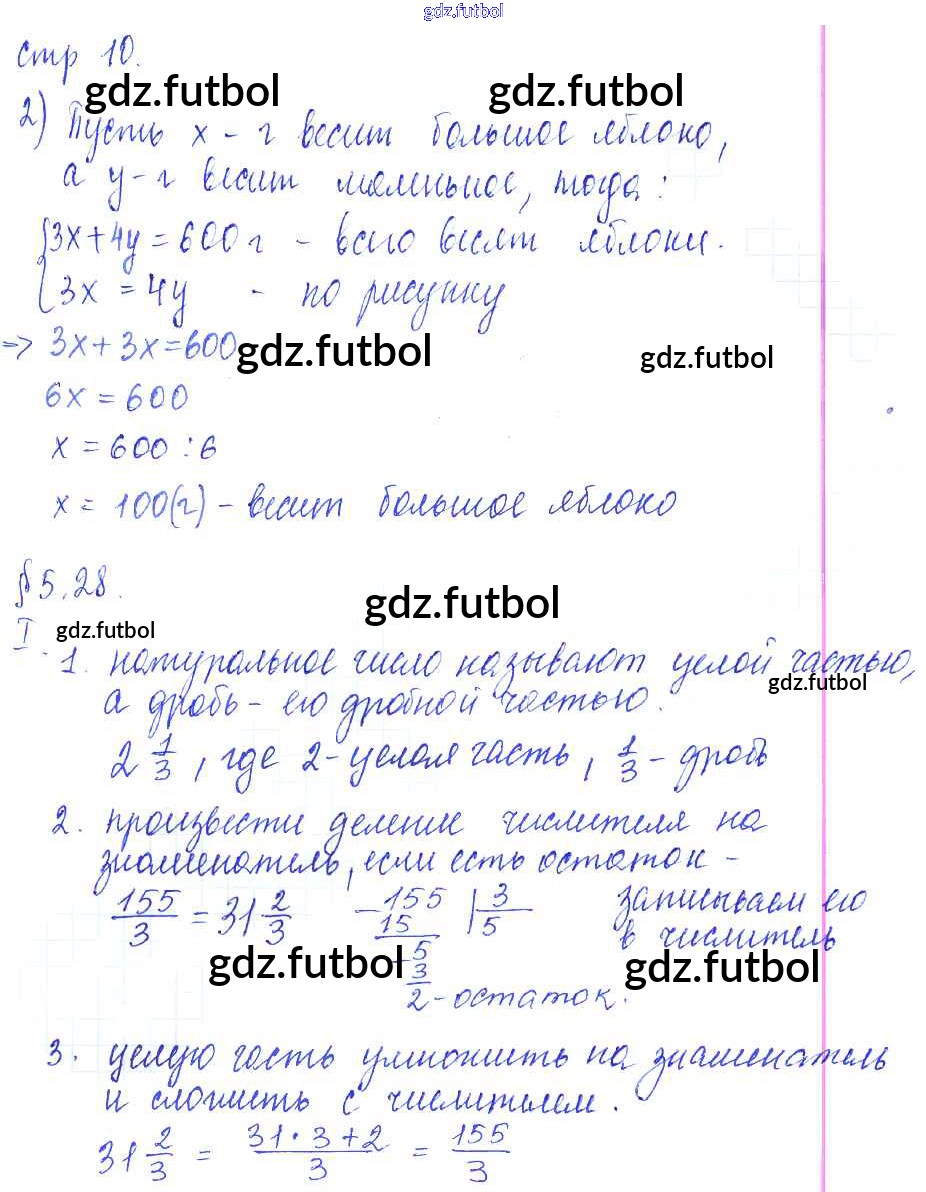 gdz.futbol
стр 10.
gdz.futbol gdz.futbol
2) Пусть x - г весит большое яблоко,
а y-г весит маленькое, тогда:
{3x+4y=600г - всего весят яблоки.
{3x = 4y - по рисунку
=> 3x+3x=600
gdz.futbol gdz.futbol
6x = 600
x = 600 : 6
x = 100(г) - весит большое яблоко
§ 5.28.
gdz.futbol
I gdz.futbol
1. натуральное число называют целой частью,
gdz.futbol
а дробь - его дробной частью.
2 1/3, где 2-целая часть, 1/3 - дробь
2. произвести деление числителя на
знаменатель, если есть остаток -
записываем его
в числитель
155/3 = 31 2/3
-155 | 3
15 5
-5
3
2-остаток.
gdz.futbol gdz.futbol
3. целую часть умножить на знаменатель
и сложить с числителем.
31 2/3 = 31·3+2/3 = 155/3